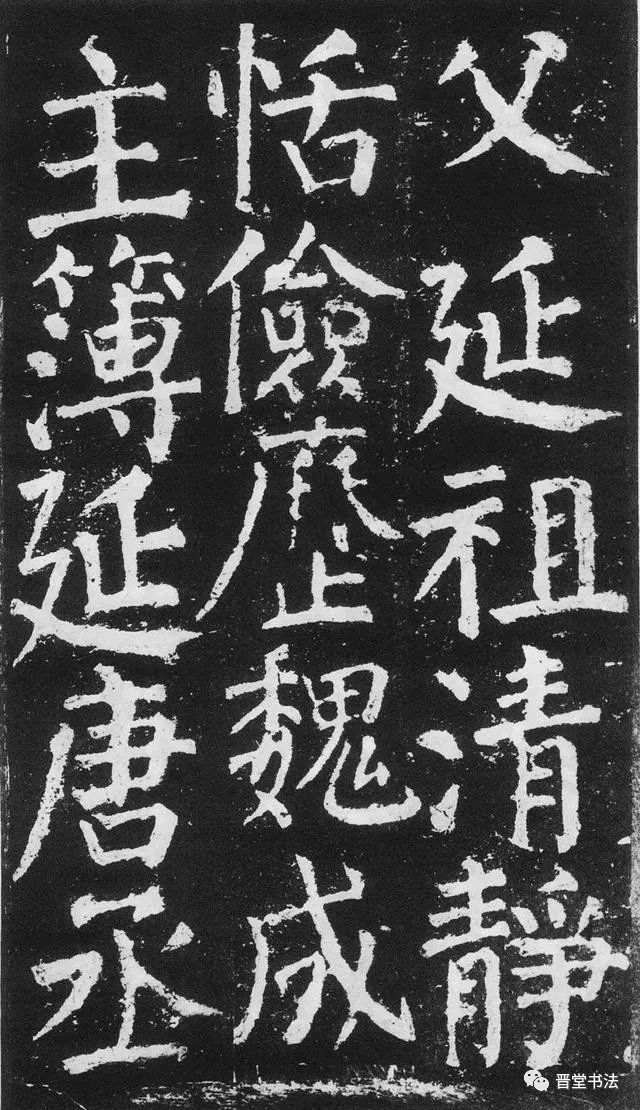 父延祖清靜
恬儉歷魏成
主簿延唐丞
晋堂书法